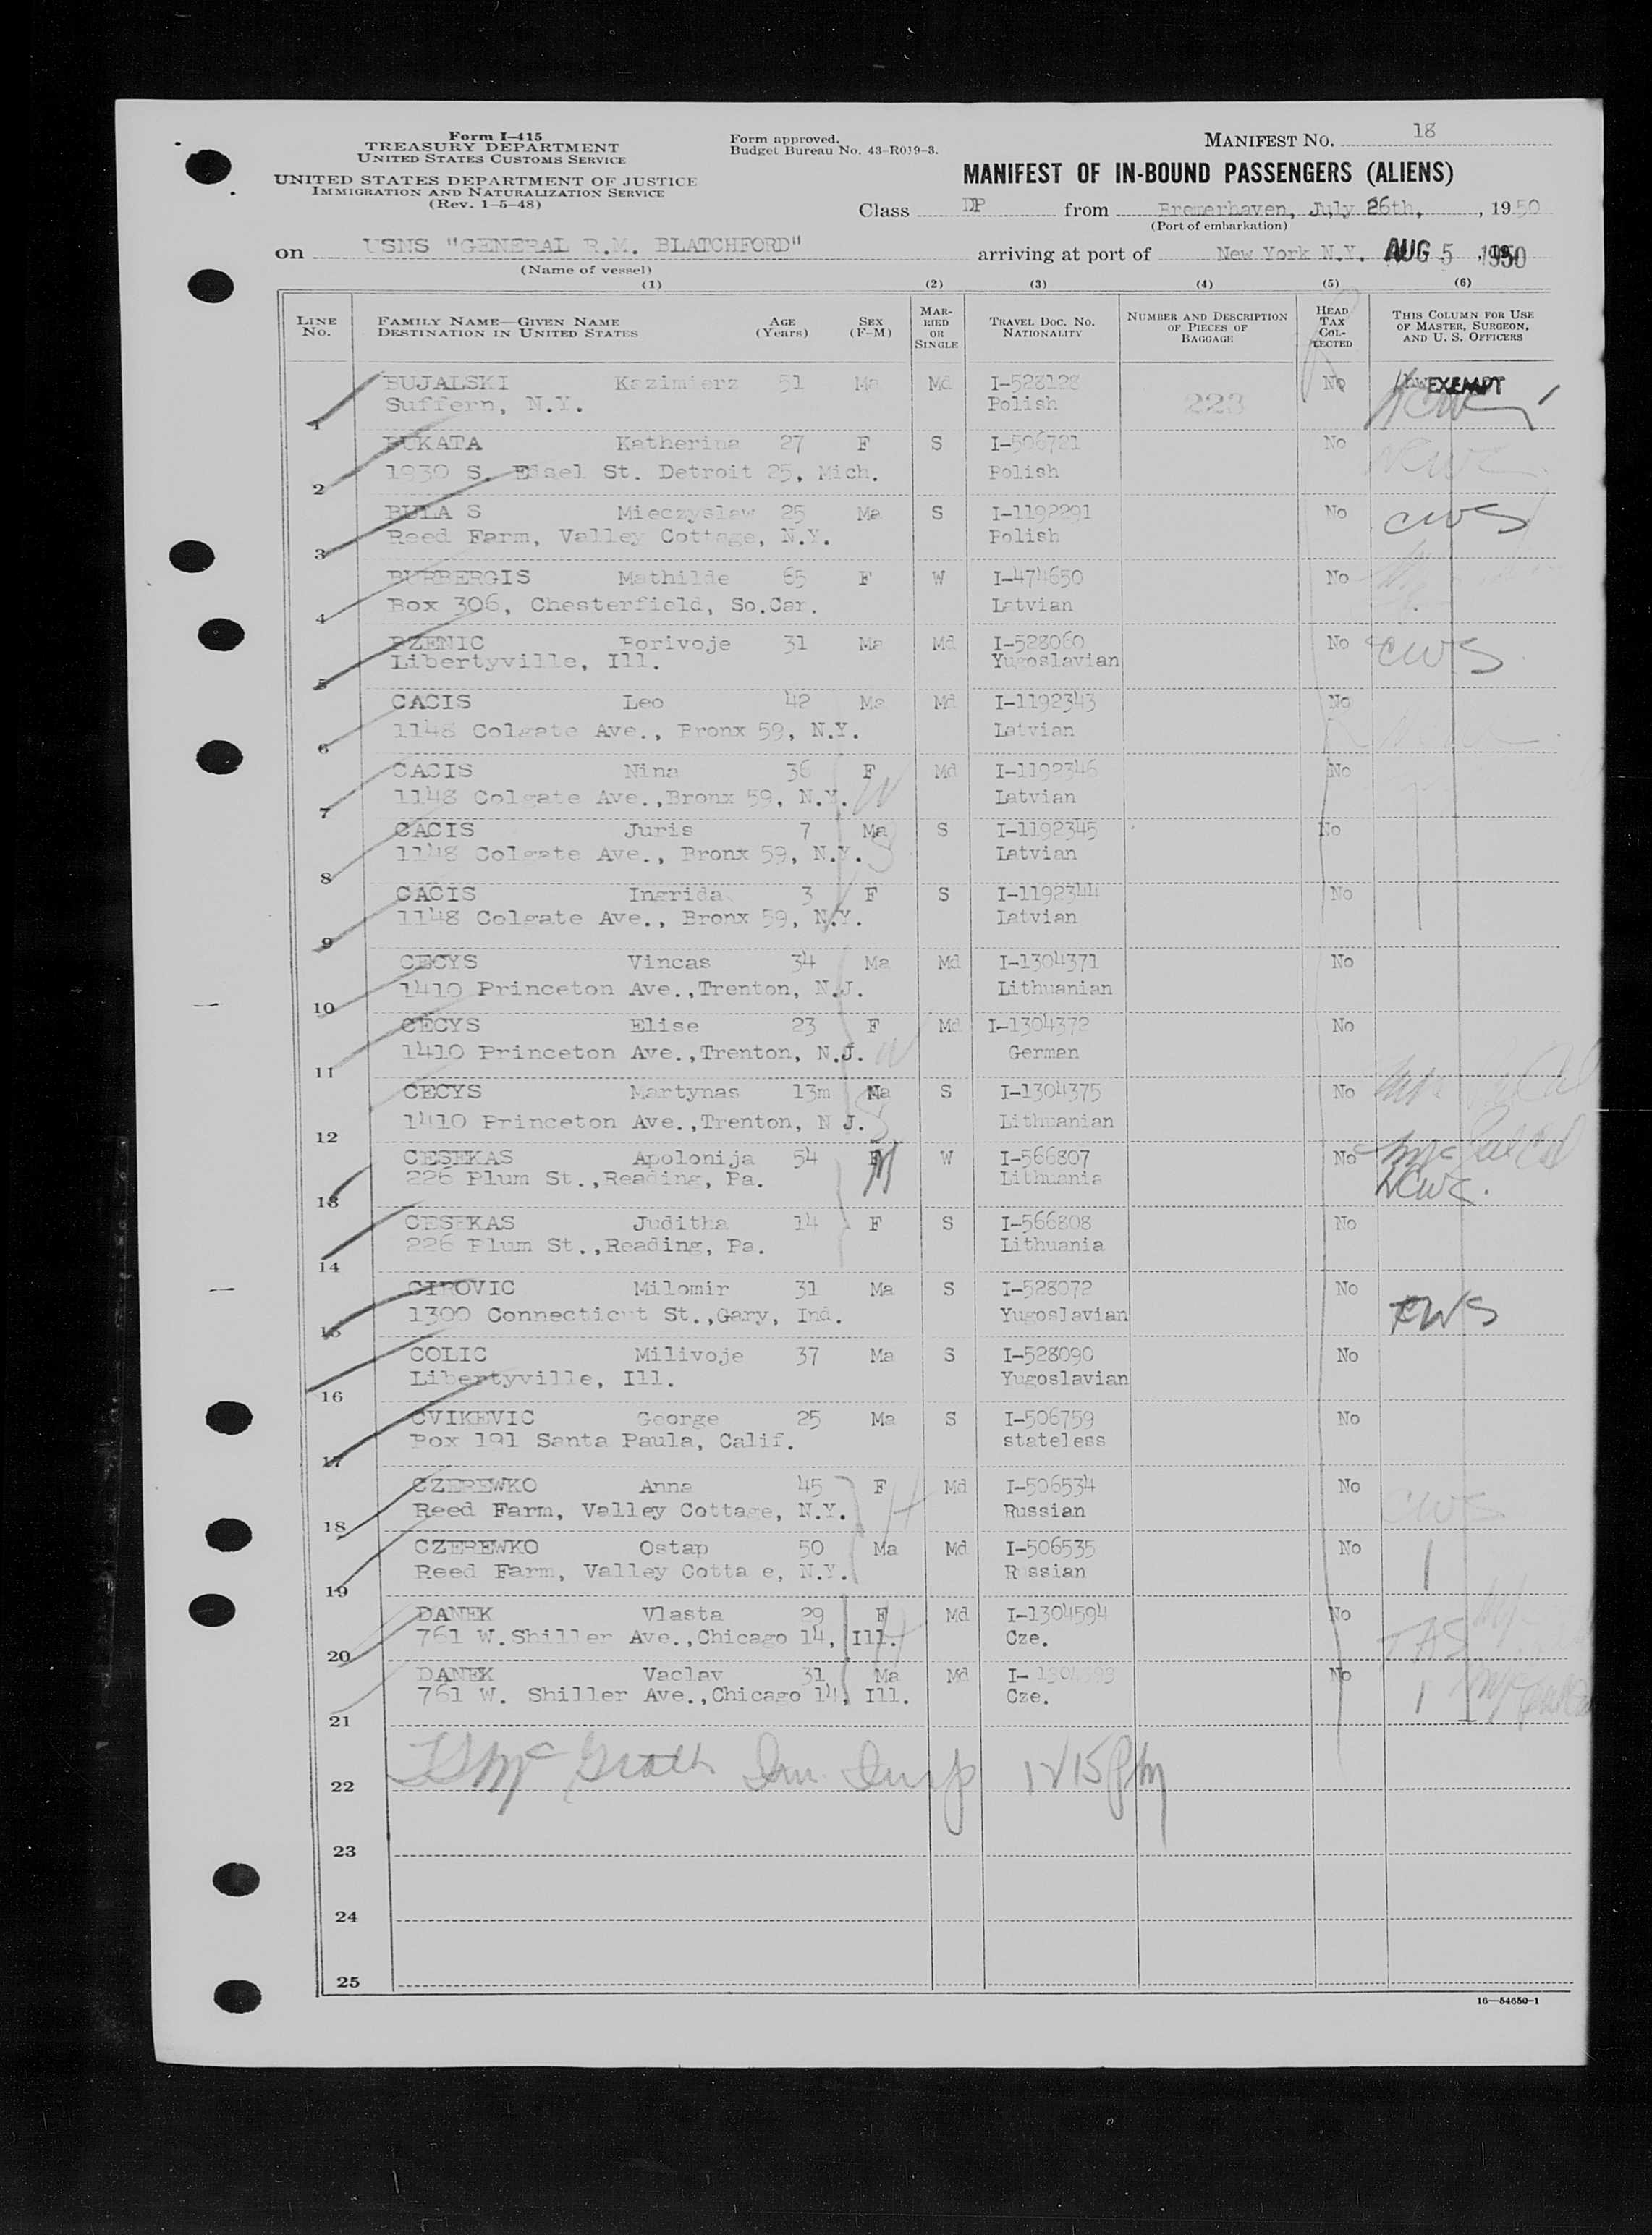 Form I-415
TREASURY DEPARTMENT
UNITED STATES CUSTOMS SERVICE
UNITED STATES DEPARTMENT OF JUSTICE
IMMIGRATION AND NATURALIZATION SERVICE
(Rev. 1-5-48)
Form approved.
Budget Bureau No. 43-R019-3.
MANIFEST NO. 18
MANIFEST OF IN-BOUND PASSENGERS (ALIENS)
Class DP from Bremerhaven, July 26th, , 1950
(Port of embarkation)
on USNS "GENERAL R.M. BLATCHFORD" arriving at port of New York N.Y. AUG 5 1950
(Name of vessel)
(1) (2) (3) (4) (5) (6)
LINE NO. FAMILY NAME—GIVEN NAME DESTINATION IN UNITED STATES AGE (Years) SEX (F-M) MARRIED OR SINGLE TRAVEL DOC. NO. NATIONALITY NUMBER AND DESCRIPTION OF PIECES OF BAGGAGE HEAD TAX COLLECTED THIS COLUMN FOR USE OF MASTER, SURGEON, AND U. S. OFFICERS
BUJALSKI Kazimierz 51 Ma Md I-528128 No EXEMPT
1 Suffern, N.Y. Polish 223 NCWC
BUKATA Katherina 27 F S I-506721 No
2 1930 S. Eisel St. Detroit 25, Mich. Polish NCWC
BULA S Mieczyslaw 25 Ma S I-1192291 No CWS
3 Reed Farm, Valley Cottage, N.Y. Polish
BURBERGIS Mathilde 65 F W I-474650 No
4 Box 306, Chesterfield, So.Car. Latvian
BZENIC Borivoje 31 Ma Md I-528060 No CWS
5 Libertyville, Ill. Yugoslavian
CACIS Leo 42 Ma Md I-1192343 No
6 1148 Colgate Ave., Bronx 59, N.Y. Latvian
CACIS Nina 36 F Md I-1192346 No
7 1148 Colgate Ave.,Bronx 59, N.Y. W Latvian
CACIS Juris 7 Ma S I-1192345 No
8 1148 Colgate Ave., Bronx 59, N.Y. S Latvian
CACIS Ingrida 3 F S I-1192344 No
9 1148 Colgate Ave., Bronx 59, N.Y. Latvian
CECYS Vincas 34 Ma Md I-1304371 No
10 1410 Princeton Ave.,Trenton, N.J. Lithuanian
CECYS Elise 23 F Md I-1304372 No
11 1410 Princeton Ave.,Trenton, N.J. W German
CECYS Martynas 13m Ma S I-1304375 No
12 1410 Princeton Ave.,Trenton, N J. S Lithuanian
CESEKAS Apolonija 54 F W I-566807 No
13 226 Plum St.,Reading, Pa. M Lithuania NCWC.
CESEKAS Juditha 14 F S I-566808 No
14 226 Plum St.,Reading, Pa. Lithuania
CIROVIC Milomir 31 Ma S I-528072 No
15 1300 Connecticut St.,Gary, Ind. Yugoslavian CWS
COLIC Milivoje 37 Ma S I-528090 No
16 Libertyville, Ill. Yugoslavian
CVIKEVIC George 25 Ma S I-506759 No
17 Box 191 Santa Paula, Calif. stateless
CZEREWKO Anna 45 F Md I-506534 No
18 Reed Farm, Valley Cottage, N.Y. H Russian CWS
CZEREWKO Ostap 50 Ma Md I-506535 No
19 Reed Farm, Valley Cotta e, N.Y. R ssian
DANEK Vlasta 29 F Md I-1304594 No
20 761 W.Shiller Ave.,Chicago 14, Ill. H Cze.
DANEK Vaclav 31 Ma Md I- 1304593 No
21 761 W. Shiller Ave.,Chicago 14, Ill. Cze.
22 McGrath Imm Insp 1215 Pm
23
24
25
16—54650-1